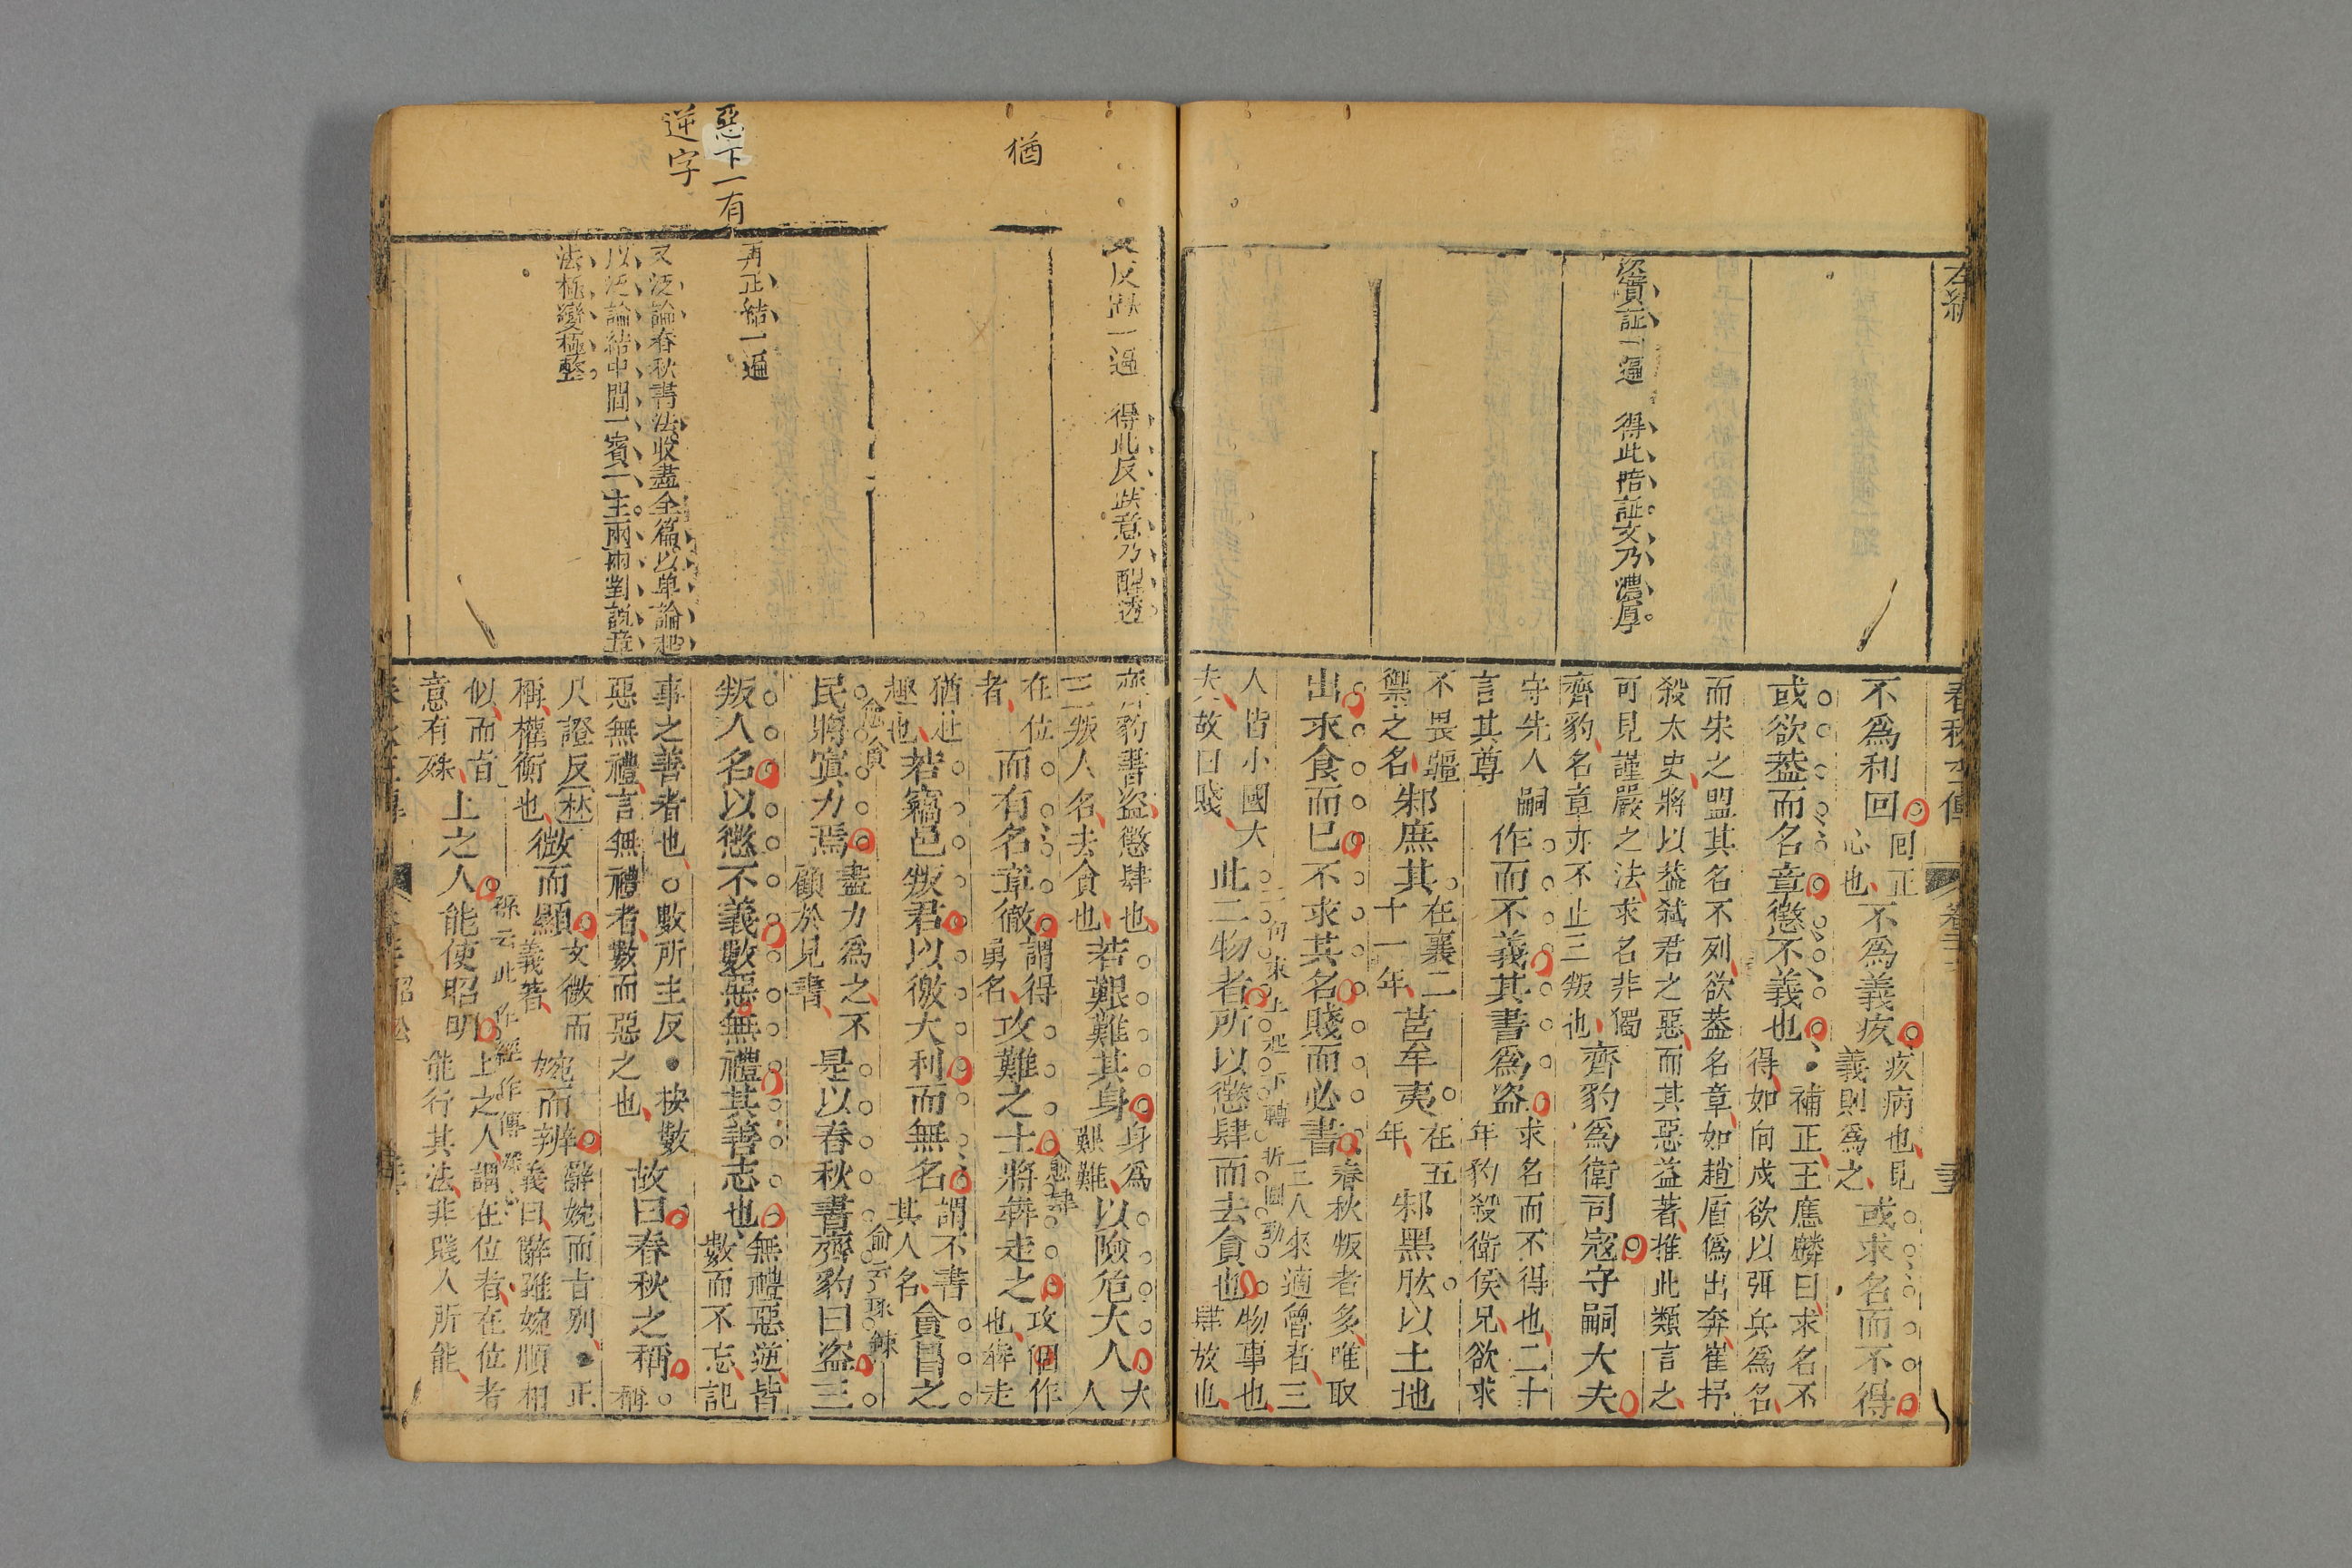 左繡
春秋左傳
卷
資証一遍　得此陪証文乃濃厚
不爲利回回正心也不爲義疚疚病也見義則爲之或求名而不得
或欲葢而名章懲不義也補正王應麟曰求名不得如向戌欲以弭兵爲名
而宋之盟其名不列欲葢名章如趙盾僞出奔崔杼
殺太史將以葢弑君之惡而其惡益著推此類言之
可見謹嚴之法求名非獨
齊豹名章亦不止三叛也齊豹爲衛司寇守嗣大夫
守先人嗣言其尊作而不義其書爲盜求名而不得也二十年豹殺衛侯兄欲求
不畏彊禦之名邾庶其在襄二十一年莒牟夷在五年邾黑肱以土地
出求食而已不求其名賤而必書春秋叛者多唯取三人來適魯者三
人皆小國大夫故曰賤此二物者所以懲肆而去貪也物事也肆放也
二句承上起下轉折圓勁
猶
惡下一有
逆字
反跌一過　得此反跌意乃醒透
再正結一遍
又泛論春秋書法收盡全篇以單論起
以泛論結中間一賓一主兩兩對說章
法極變極整
齊豹書盜懲肆也
三叛人名去貪也若艱難其身身爲艱難以險危大人大人
在位者而有名章徹謂得勇名攻難之士將奔走之攻猶作也奔走
愈肆
猶赴趣也若竊邑叛君以徼大利而無名謂不書其人名貪冒之
愈貪
民將寘力焉盡力爲之不顧於見書是以春秋書齊豹曰盜三
俞云琢鍊
叛人名以懲不義數惡無禮其善志也無禮惡逆皆數而不忘記
事之善者也○數所主反按數
惡無禮言無禮者數而惡之也故曰春秋之稱稱
尺證反
稱權衡也微而顯文微而義著婉而辨辭婉而旨別正義曰辭雖婉順相
似而旨意有殊上之人能使昭明上之人謂在位者在位者能行其法非賤人所能
孫云此作經作傳